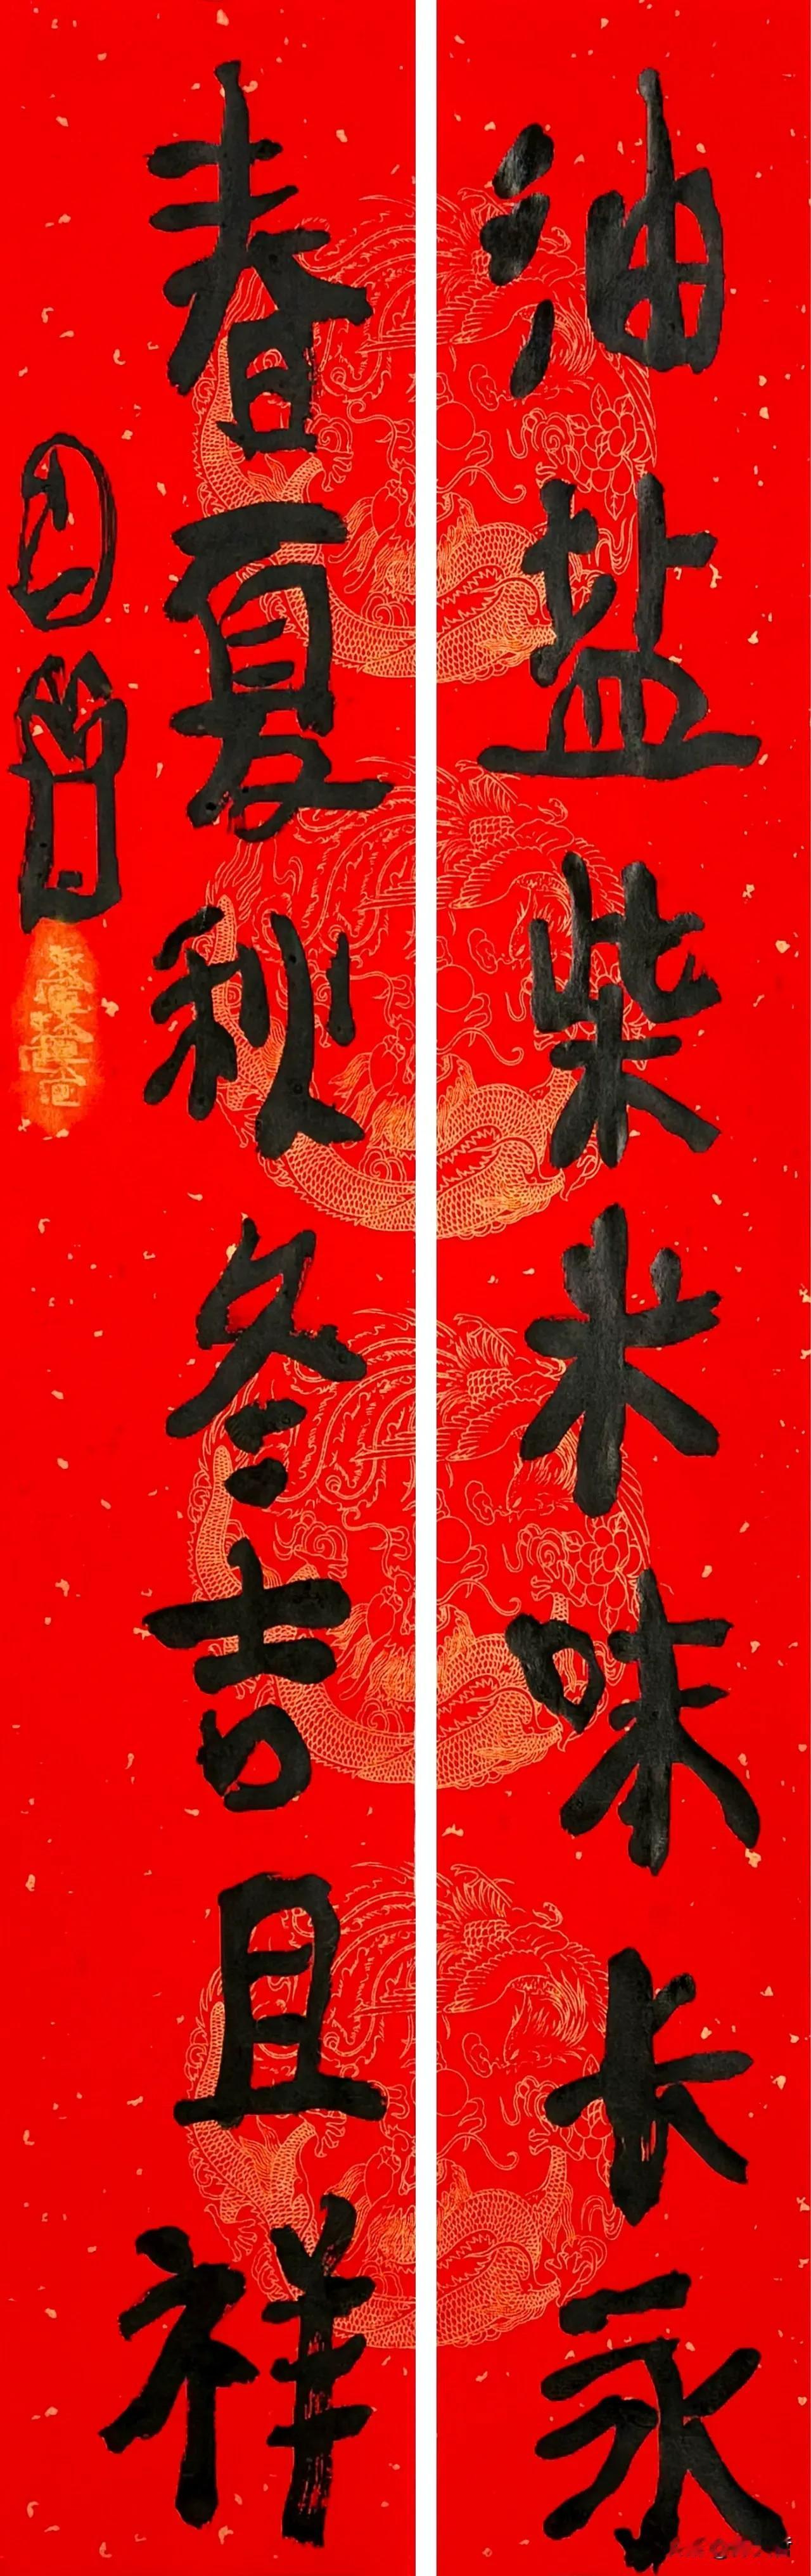 油盐柴米味长永
春夏秋冬吉且祥